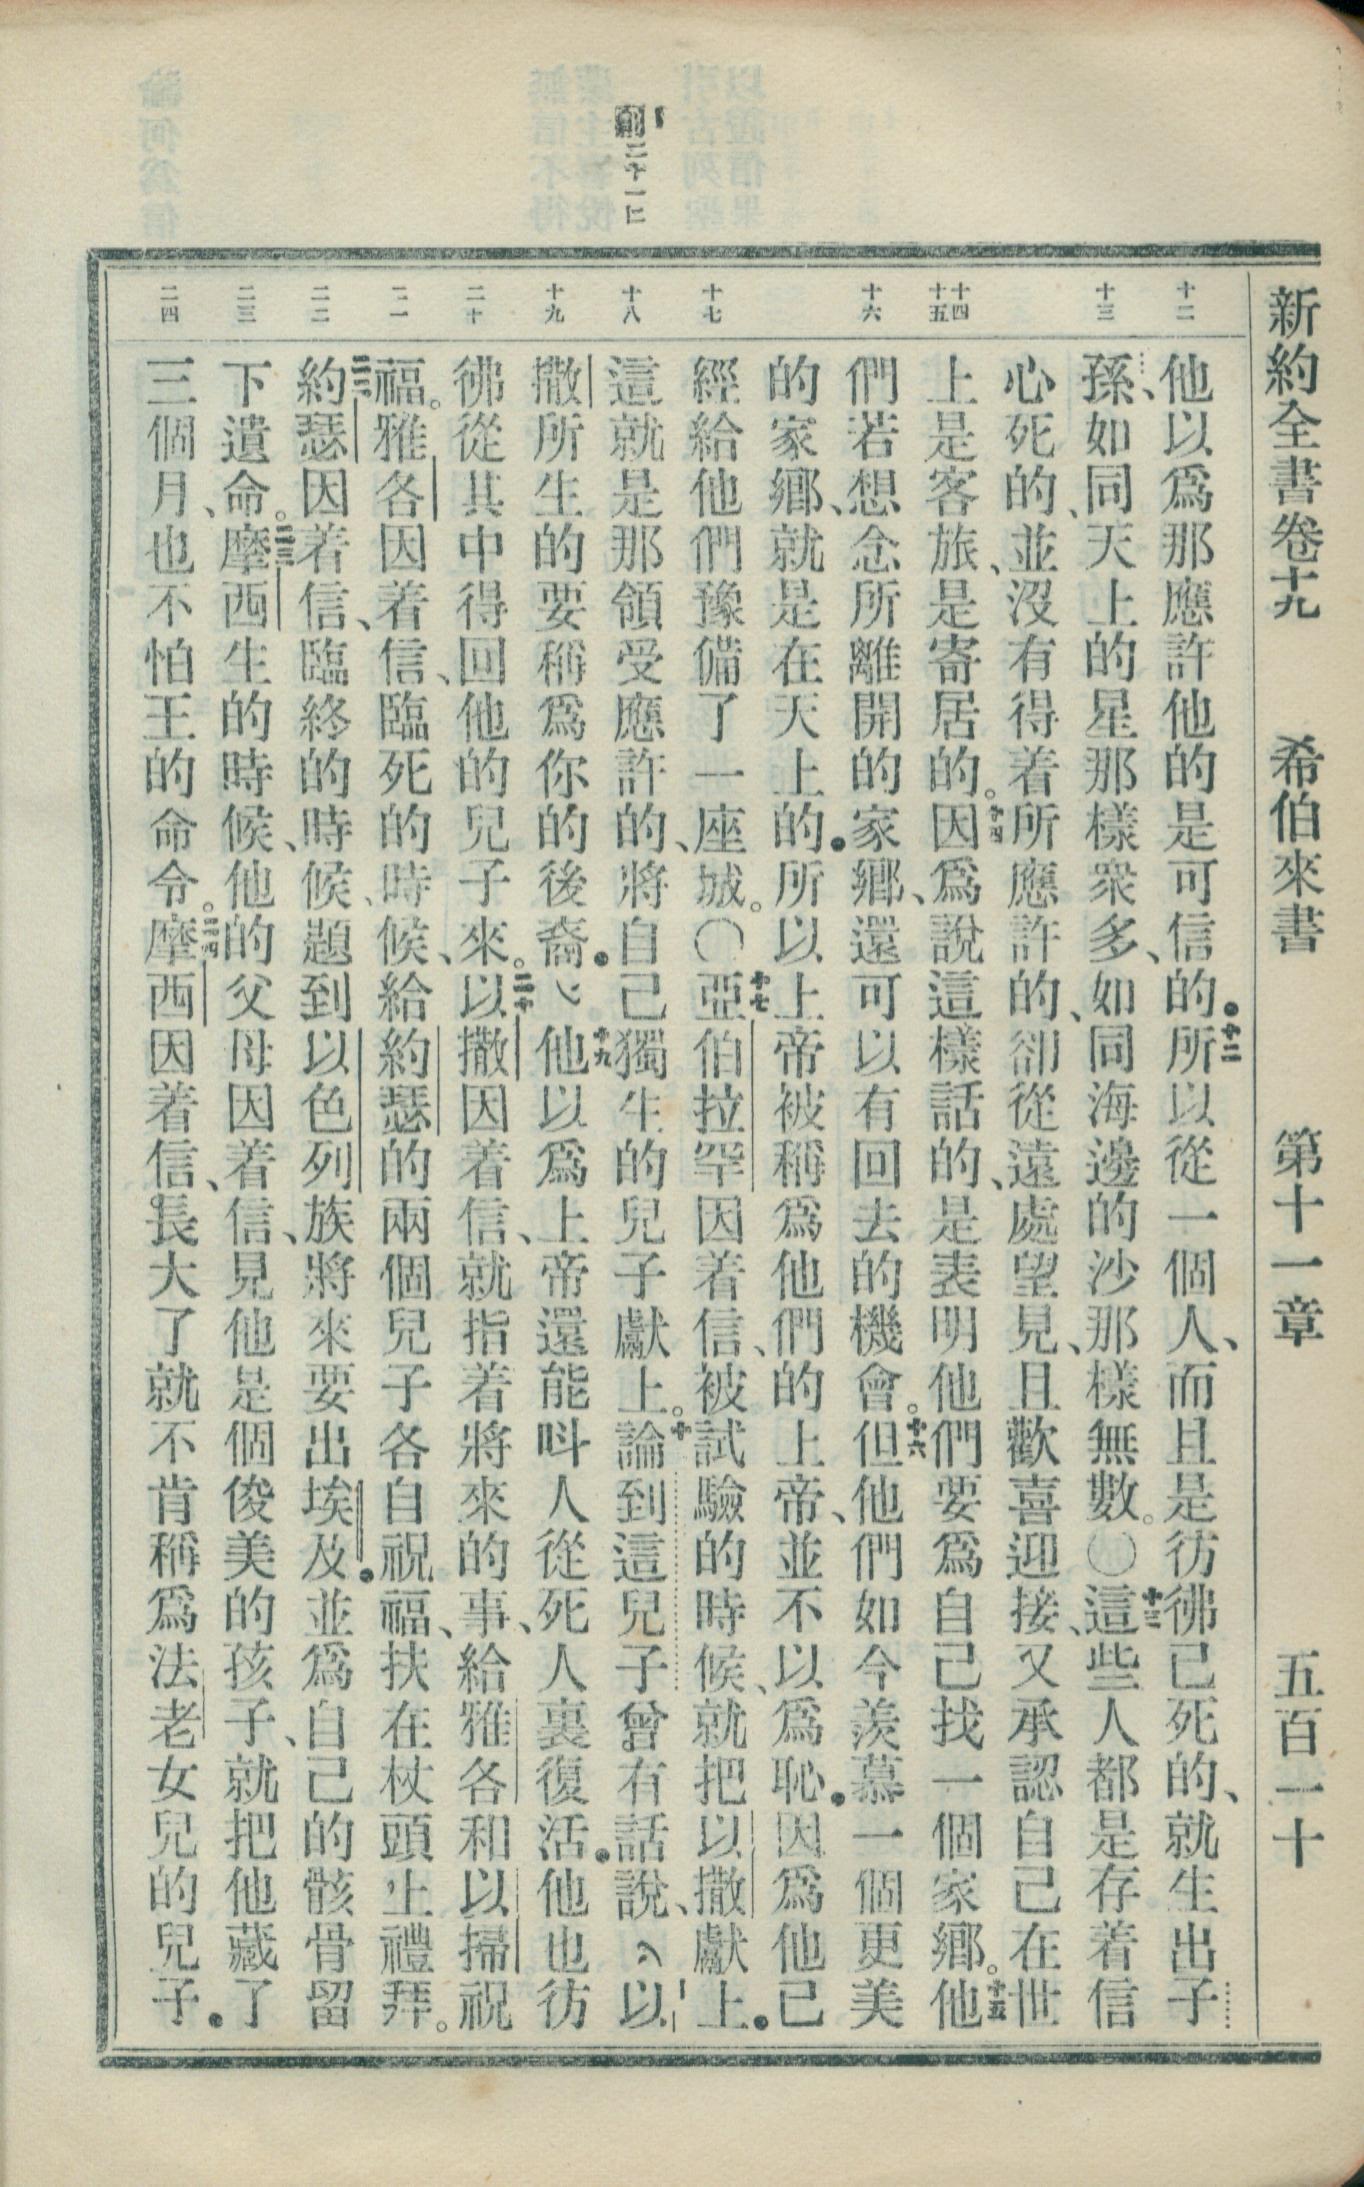 新約全書卷十九 希伯來書 第十一章 五百一十
十二 十三 十四 十五 十六 十七 十八 十九 二十 二一 二二 二三 二四
他以爲那應許他的是可信的.十二所以從一個人、而且是彷彿已死的、就生出子
孫、如同天上的星那樣衆多、如同海邊的沙那樣無數。〇十三這些人都是存着信
心死的、並沒有得着所應許的、卻從遠處望見、且歡喜迎接、又承認自己在世
上是客旅、是寄居的。十四因爲說這樣話的、是表明他們要爲自己找一個家鄉。十五他
們若想念所離開的家鄉、還可以有回去的機會。十六但他們如今羨慕一個更美
的家鄉、就是在天上的.所以上帝被稱爲他們的上帝、並不以爲恥.因爲他已
經給他們豫備了一座城。〇十七亞伯拉罕因着信、被試驗的時候、就把以撒獻上.
這就是那領受應許的、將自己獨生的兒子獻上。論到這兒子曾有話說、以
撒所生的要稱爲你的後裔.十九他以爲上帝還能呌人從死人裏復活.他也彷
彿從其中得回他的兒子來。二十以撒因着信、就指着將來的事、給雅各和以掃祝
福。雅各因着信、臨死的時候、給約瑟的兩個兒子各自祝福、扶在杖頭上禮拜。
二二約瑟因着信、臨終的時候、題到以色列族將來要出埃及.並爲自己的骸骨留
下遺命。二三摩西生的時候、他的父母因着信、見他是個俊美的孩子、就把他藏了
三個月、也不怕王的命令。二四摩西因着信、長大了就不肯稱爲法老女兒的兒子.